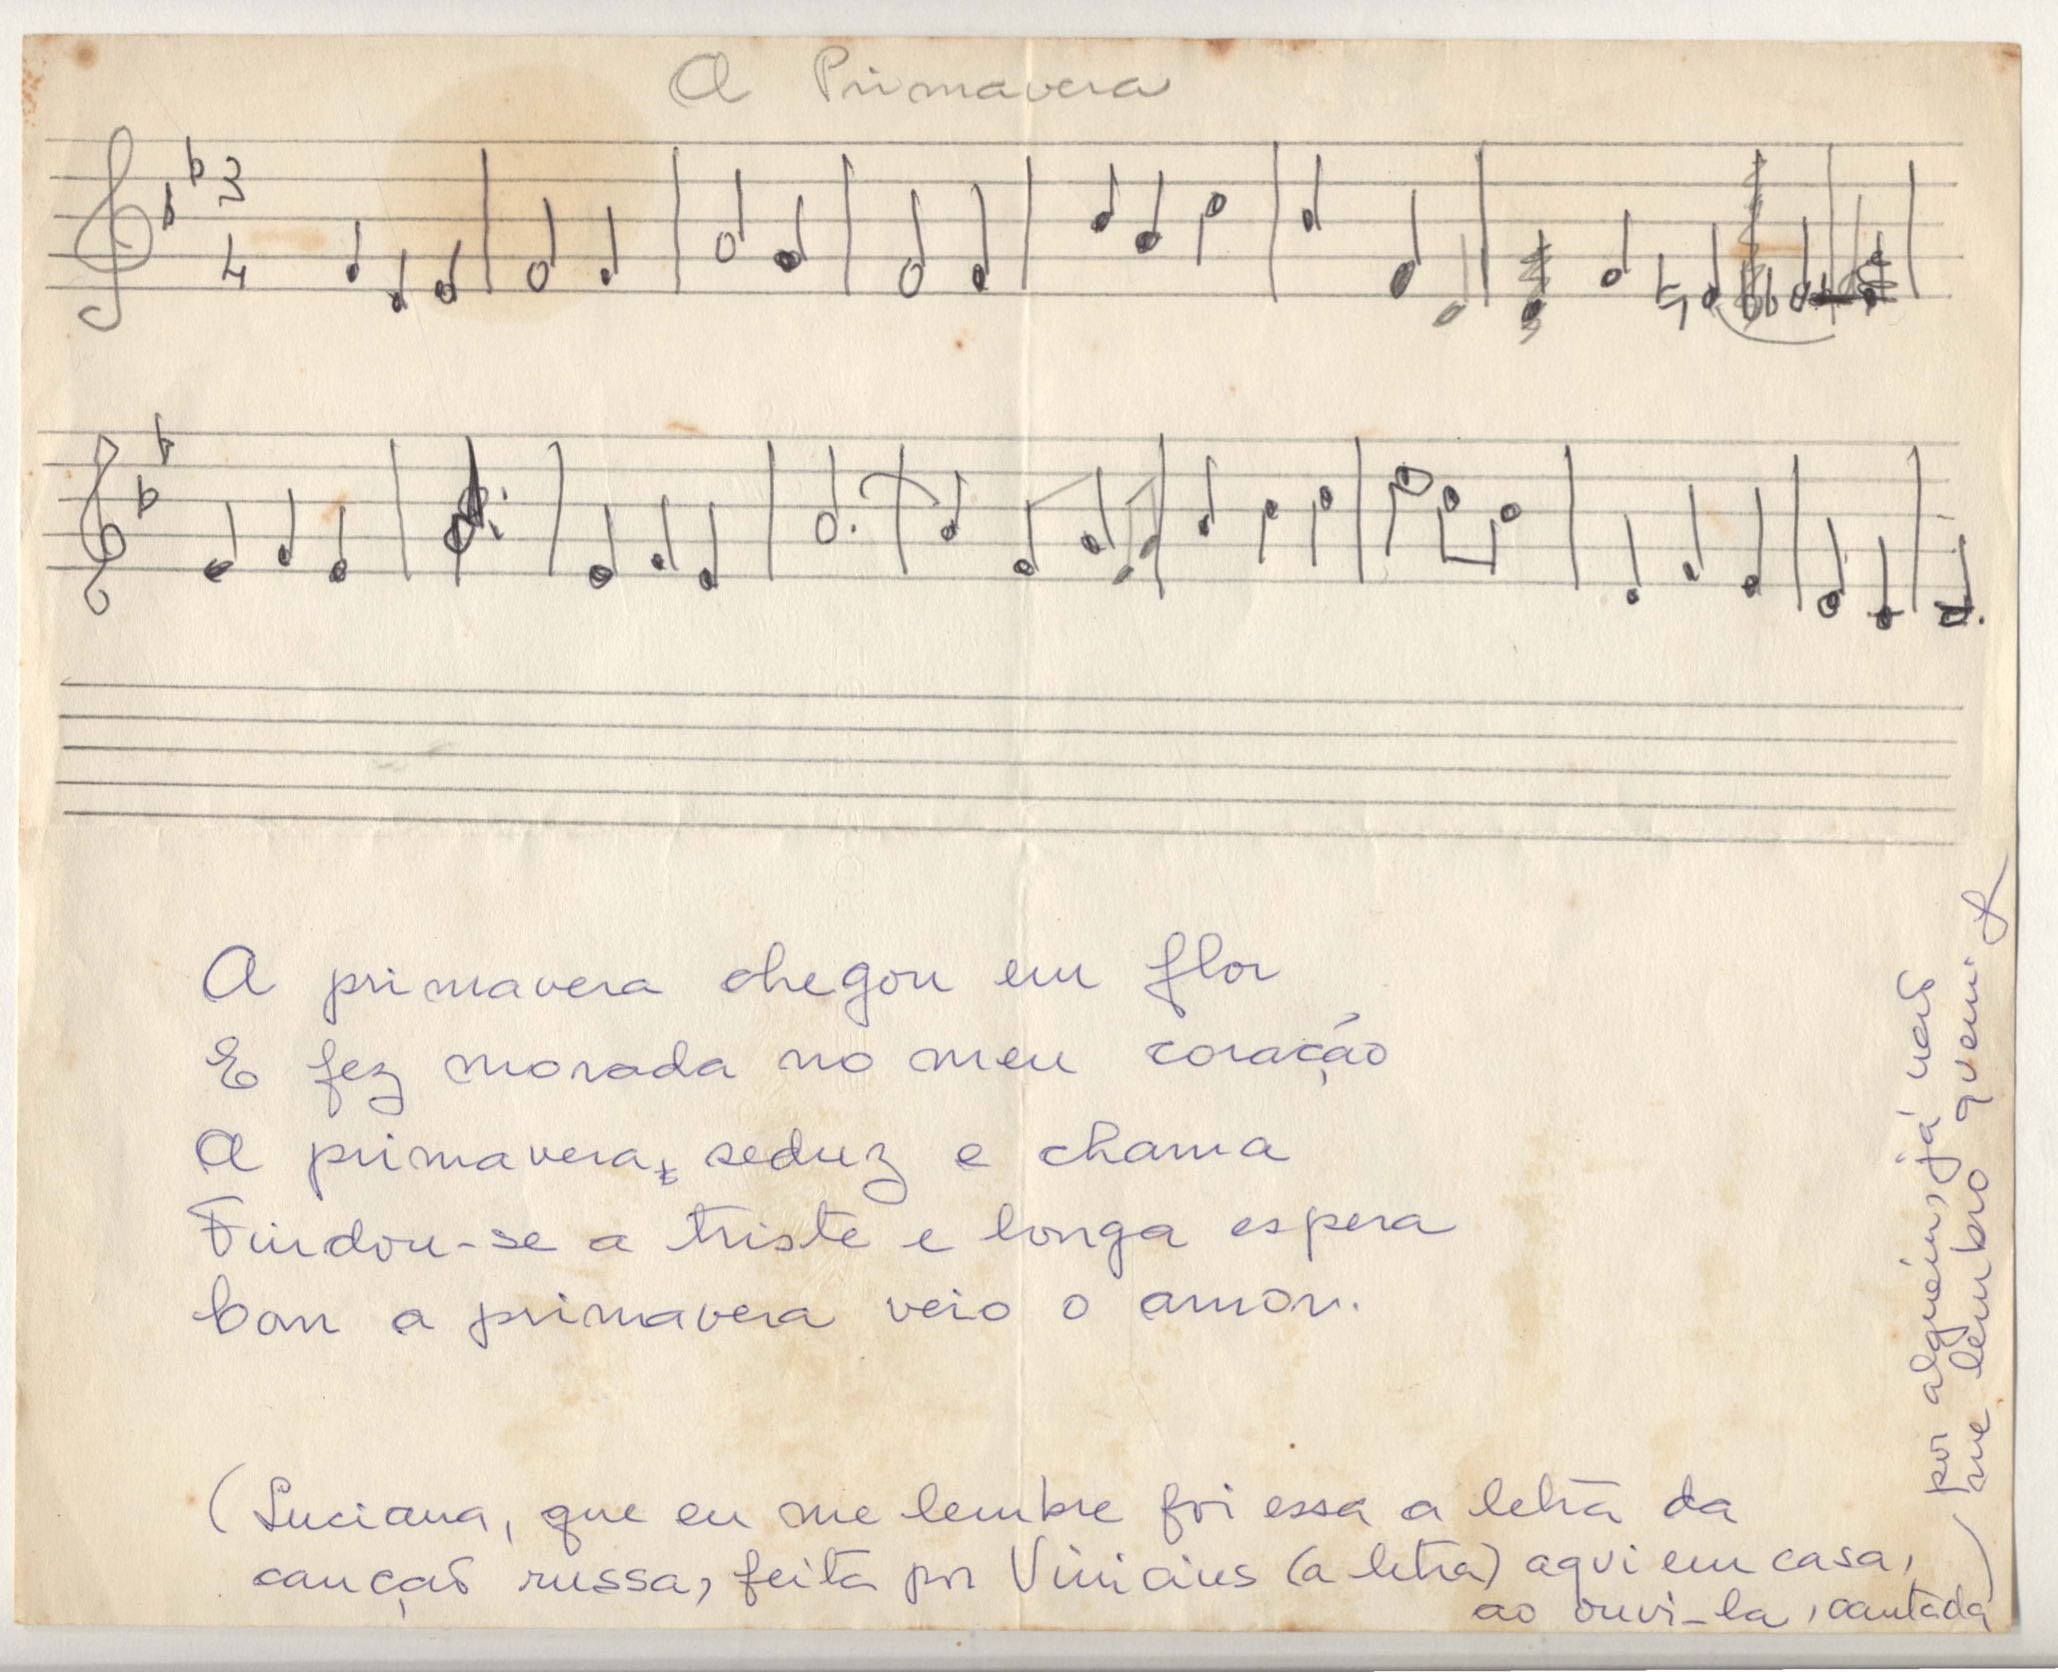 A Primavera
3
4
A primavera chegou em flor
E fez morada no meu coração
A primavera, seduz e chama
Findou-se a triste e longa espera
Com a primavera veio o amor.
(Luciana, que eu me lembre foi essa a letra da
canção russa, feita por Vinicius (a letra) aqui em casa,
ao ouvi-la, cantada
por alguém, já não
me lembro quem.)